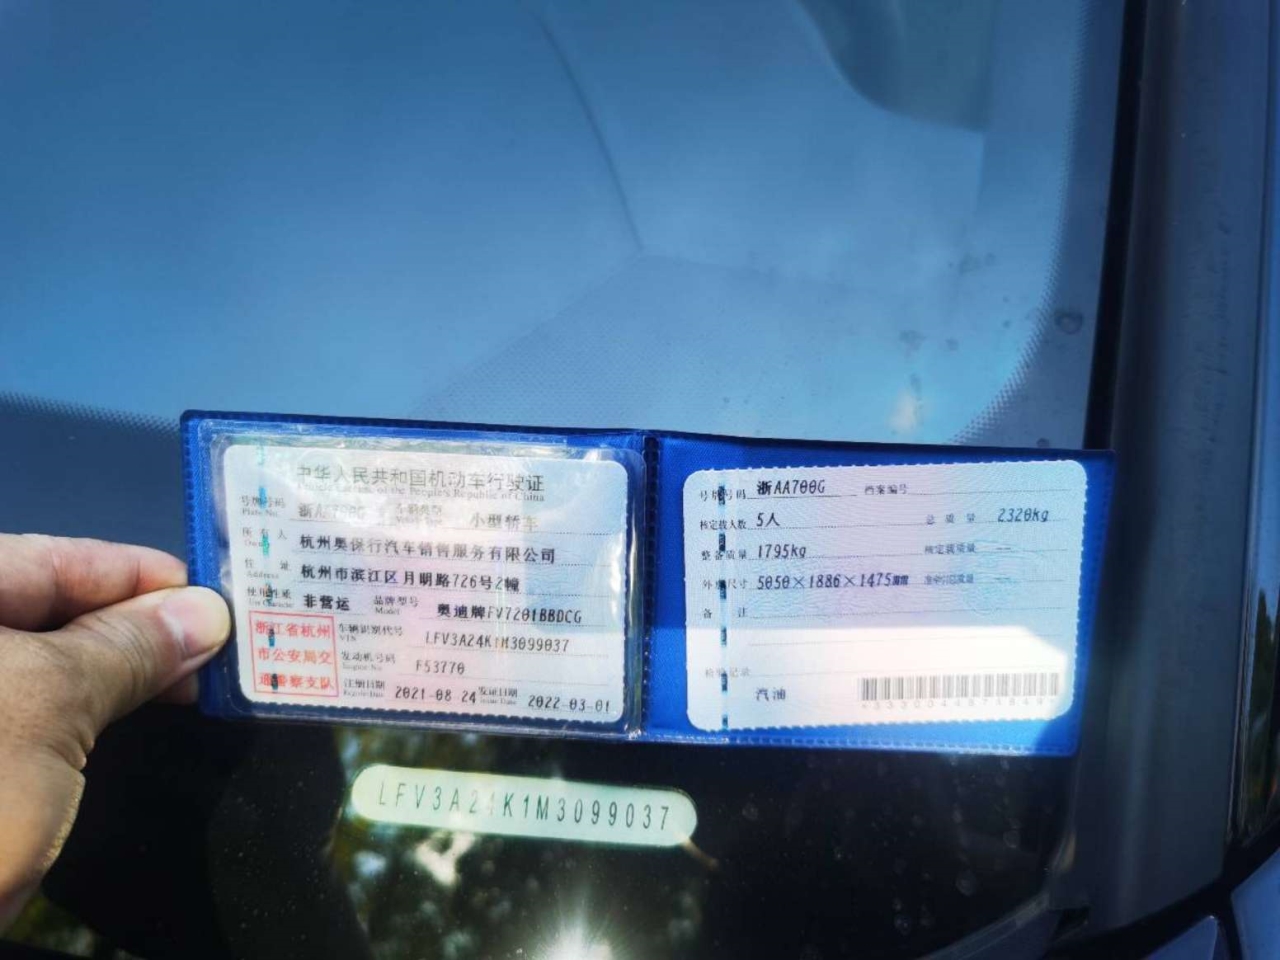 中华人民共和国机动车行驶证
of the People's Republic of China
号牌号码 浙AA700G 车辆类型 小型轿车
Plate No. Vehicle Type
所有人 杭州奥保行汽车销售服务有限公司
住址 杭州市滨江区月明路726号2幢
Address
使用性质 非营运 品牌型号 奥迪牌FV7201BBDCG
Use Character Model
浙江省杭州市公安局交通警察支队
车辆识别代号 LFV3A24K1M3099037
VIN
发动机号码 F53770
Engine No.
注册日期 2021-08-24 发证日期 2022-03-01
Register Date Issue Date
号牌号码 浙AA700G 档案编号
核定载人数 5人 总质量 2320kg
整备质量 1795kg 核定载质量 --
外廓尺寸 5050×1886×1475mm 准牵引总质量 --
备注
检验记录
汽油
LFV3A24K1M3099037